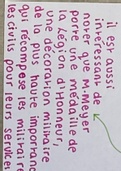 il est aussi
intéressant de
noter que M. Meyer
porte une médaille de
la Légion d'Honneur,
une décoration militaire
de la plus haute importance
qui récompose les militaire
les civils pour leurs services